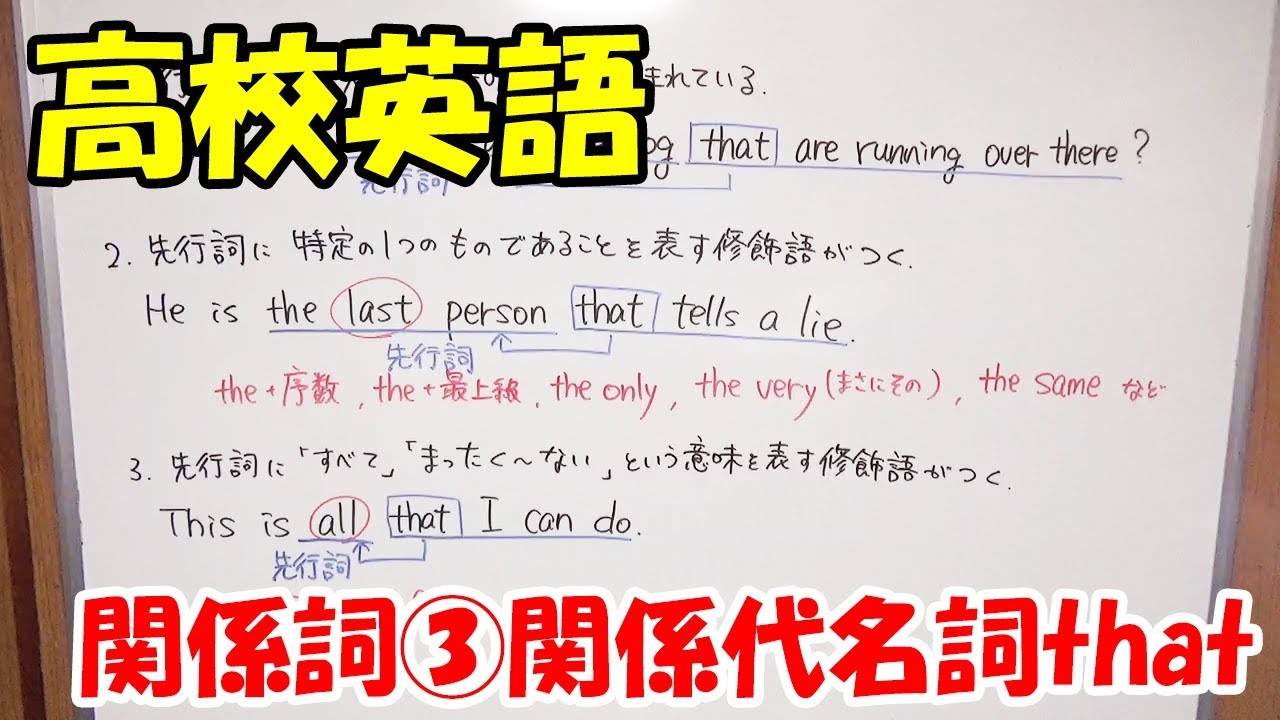 高校英語
まれている.
that are running over there?
先行詞
2. 先行詞に 特定の1つのものであることを表す修飾語がつく.
He is the last person that tells a lie.
先行詞
the+序数, the+最上級, the only, the very(まさにその), the same など
3. 先行詞に「すべて」「まったく～ない」という意味を表す修飾語がつく.
This is all that I can do.
先行詞
関係詞③関係代名詞that